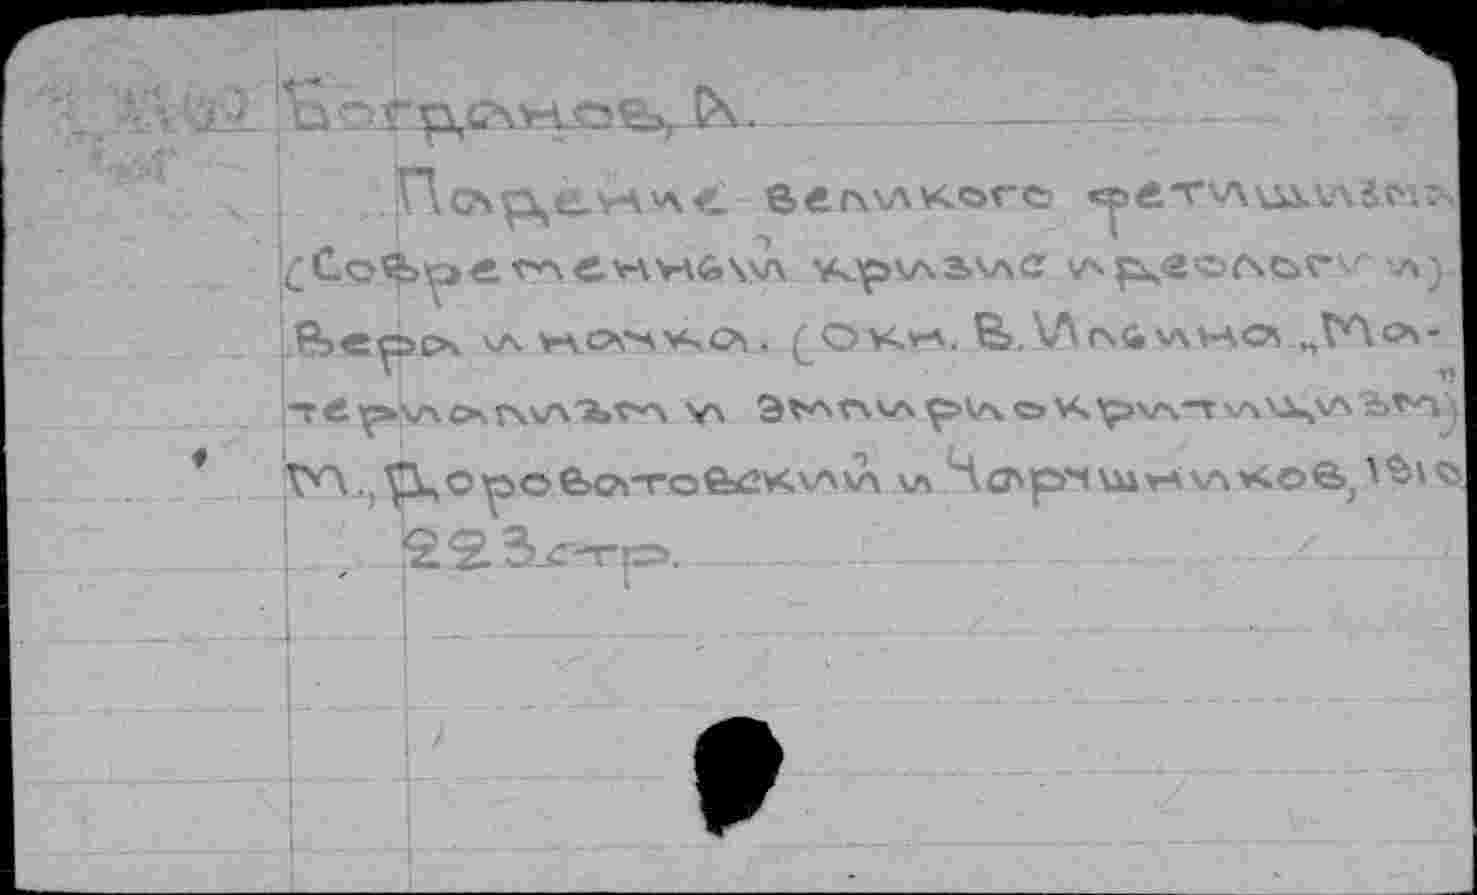 Богданов, А.
Падение великого фетишизма
(Современный кризис идеологии)
Вера и наука. (О кн. В. Ильина „Ма-
териализм и эмпириокритицизм")
М., Дороватовский и Чарушников, 1910
223 стр.